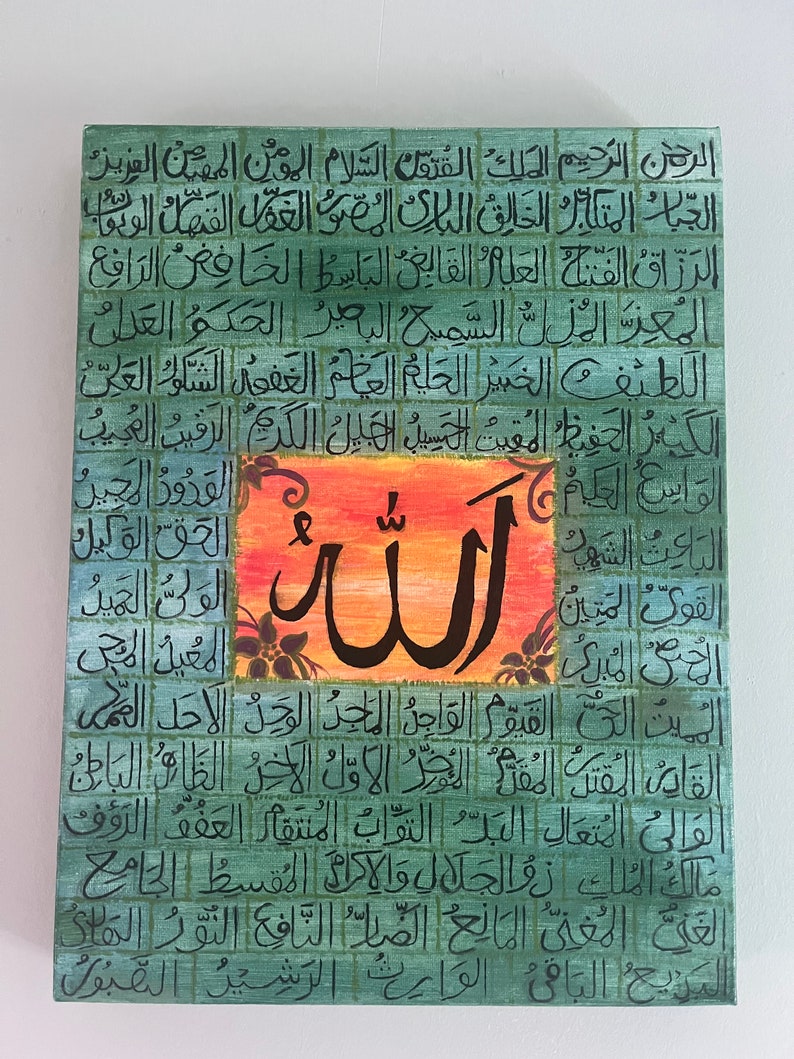 الرحمن الرحيم الملك القدوس السلام المؤمن المهيمن العزيز
الجبار المتكبر الخالق البارئ المصور الغفار القهار الوهاب
الرزاق الفتاح العليم القابض الباسط الخافض الرافع
المعز المذل السميع البصير الحكم العدل
اللطيف الخبير الحليم العظيم الغفور الشكور العلي
الكبير الحفيظ المقيت الحسيب الجليل الكريم الرقيب المجيب
الواسع الحكيم الودود المجيد
الباعث الشهيد الحق الوكيل
اللهُ
القوي المتين الولي الحميد
المحصي المبدئ المعيد المحيي
المميت الحي القيوم الواجد الماجد الوحد الاحد الصمد
القادر المقتدر المقدم المؤخر الاول الاخر الظاهر الباطن
الوالي المتعال البر التواب المنتقم العفو الرؤف
مالك الملك ذو الجلال والاكرام المقسط الجامع
الغني المغني المانع الضار النافع النور الهادي
البديع الباقي الوارث الرشيد الصبور